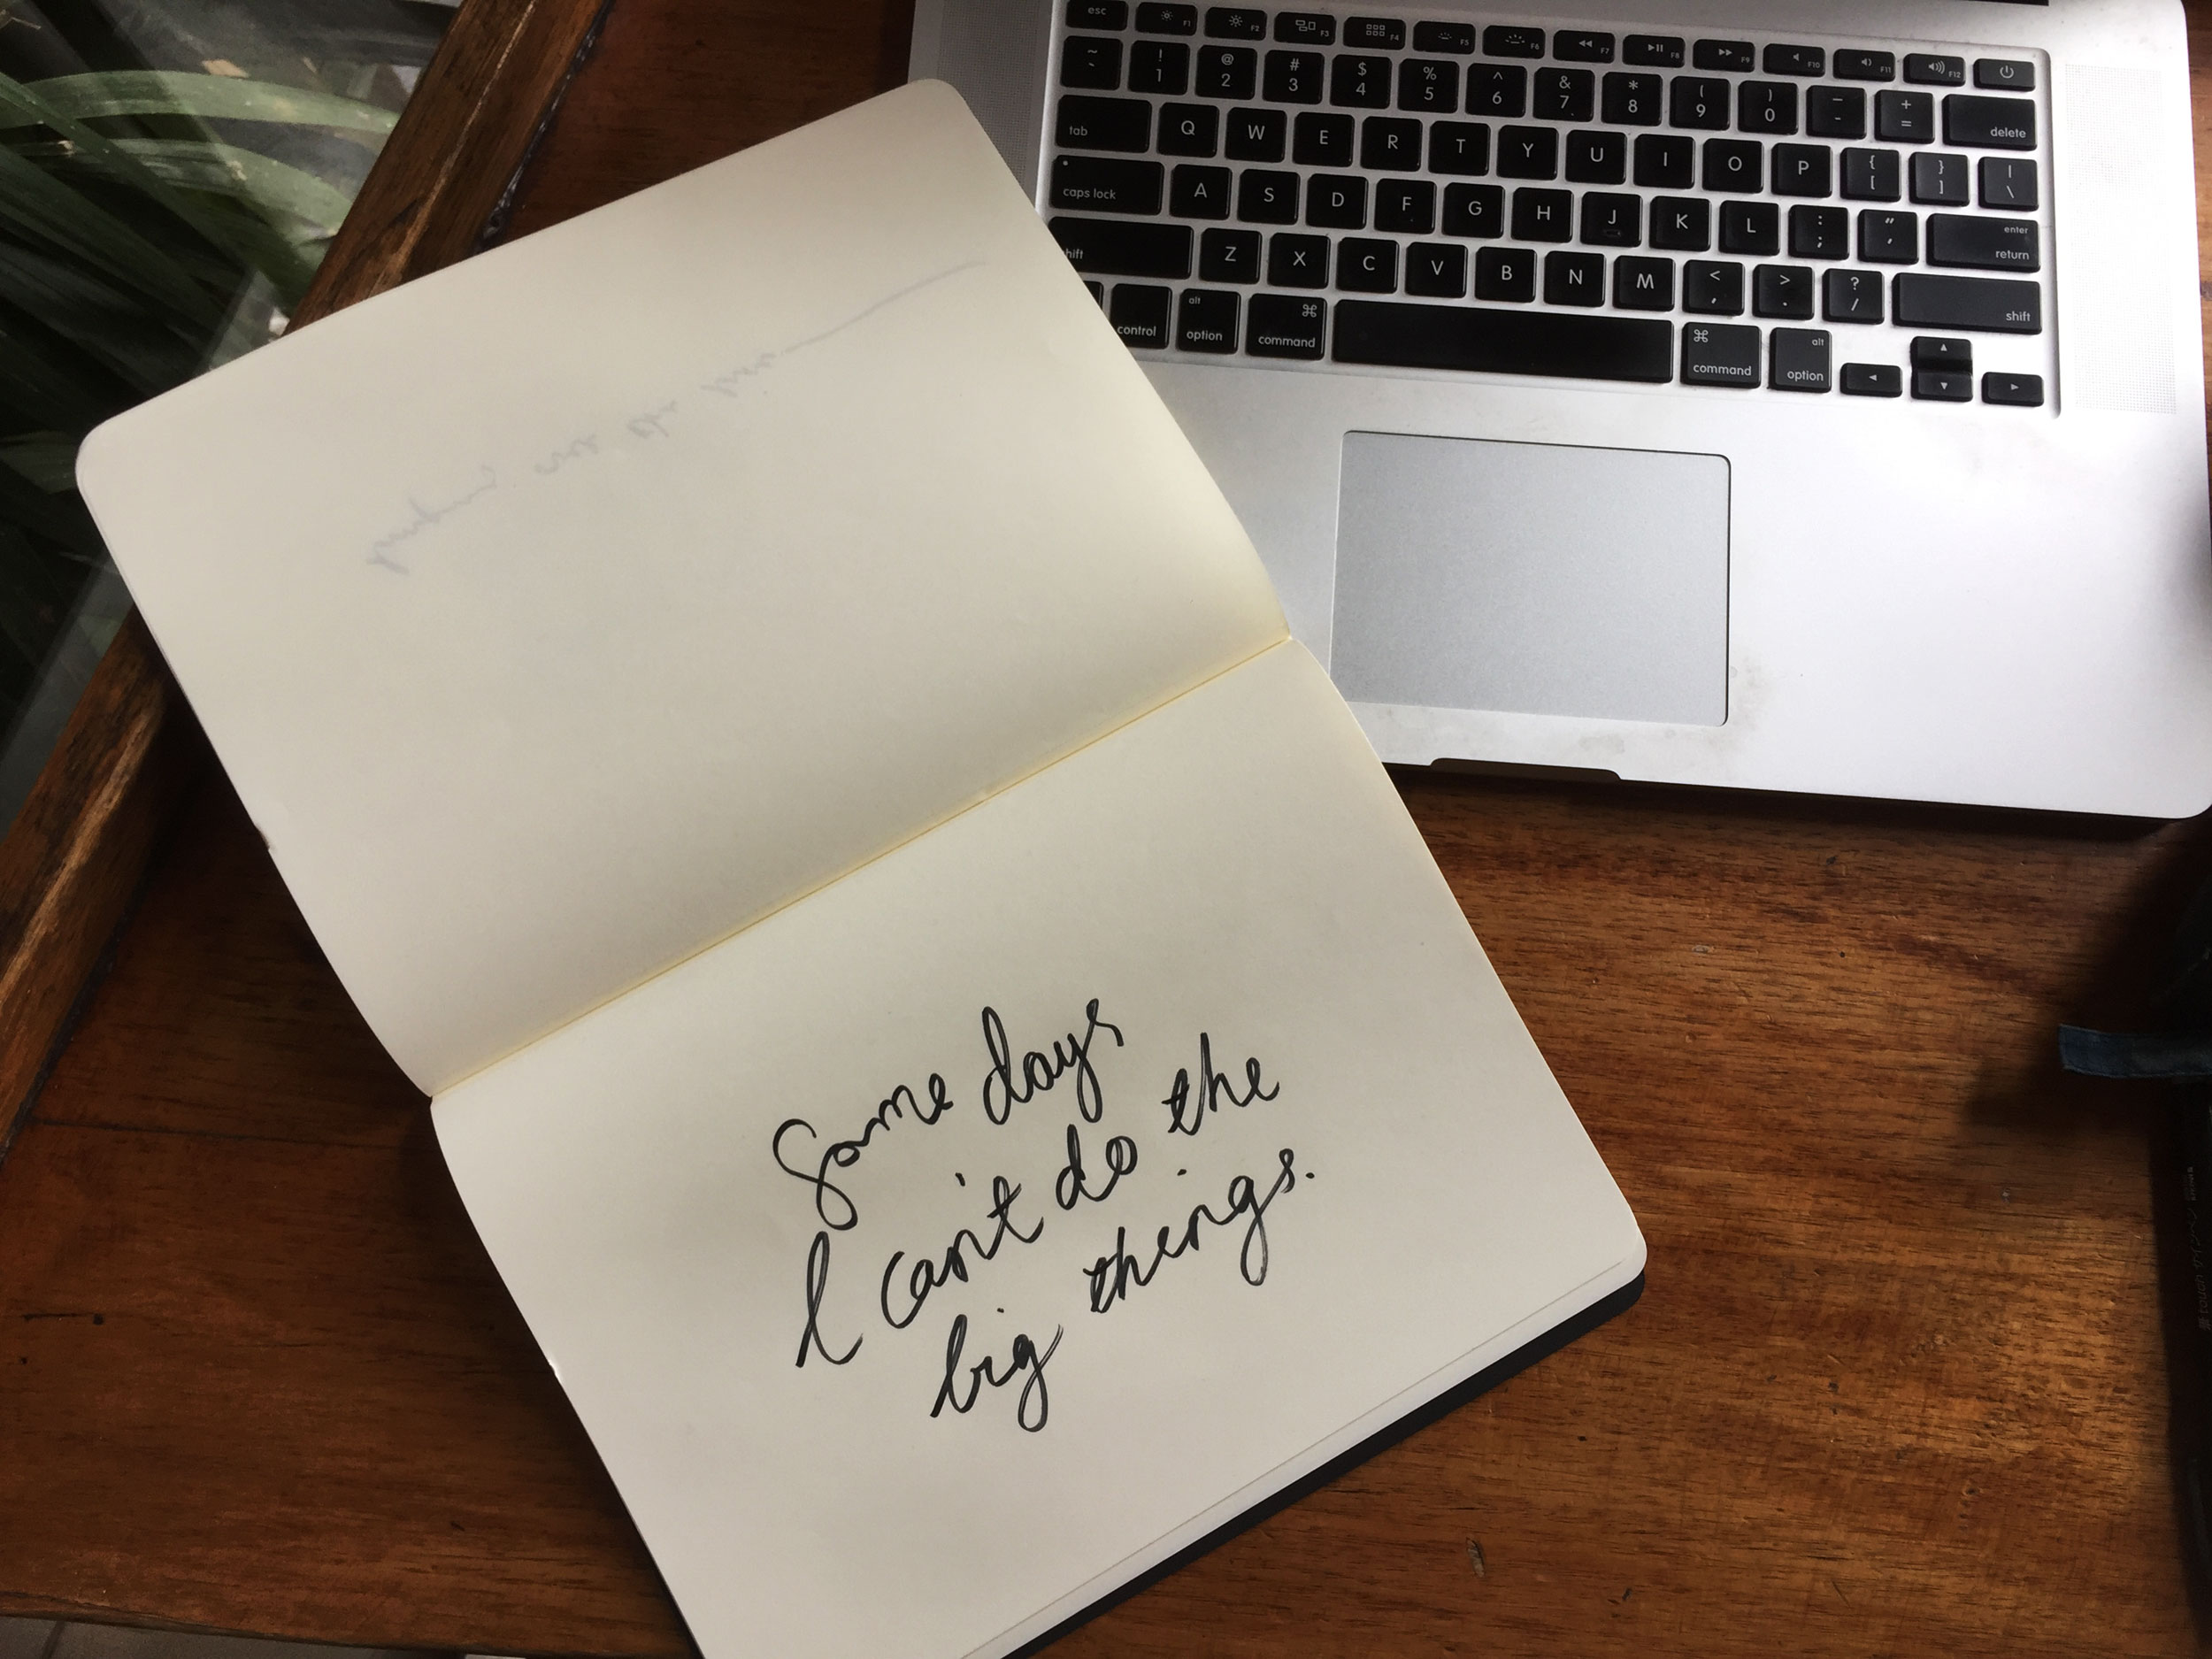 Some days
I can't do the
big things.
esc F1 F2 F3 F4 F5 F6 F7 F8 F9 F10 F11 F12
~ ` ! 1 @ 2 # 3 $ 4 % 5 ^ 6 & 7 * 8 ( 9 ) 0 _ - + = delete
tab Q W E R T Y U I O P { [ } ] | \
caps lock A S D F G H J K L : ; " ' enter return
shift Z X C V B N M < , > . ? / shift
control alt option ⌘ command ⌘ command alt option